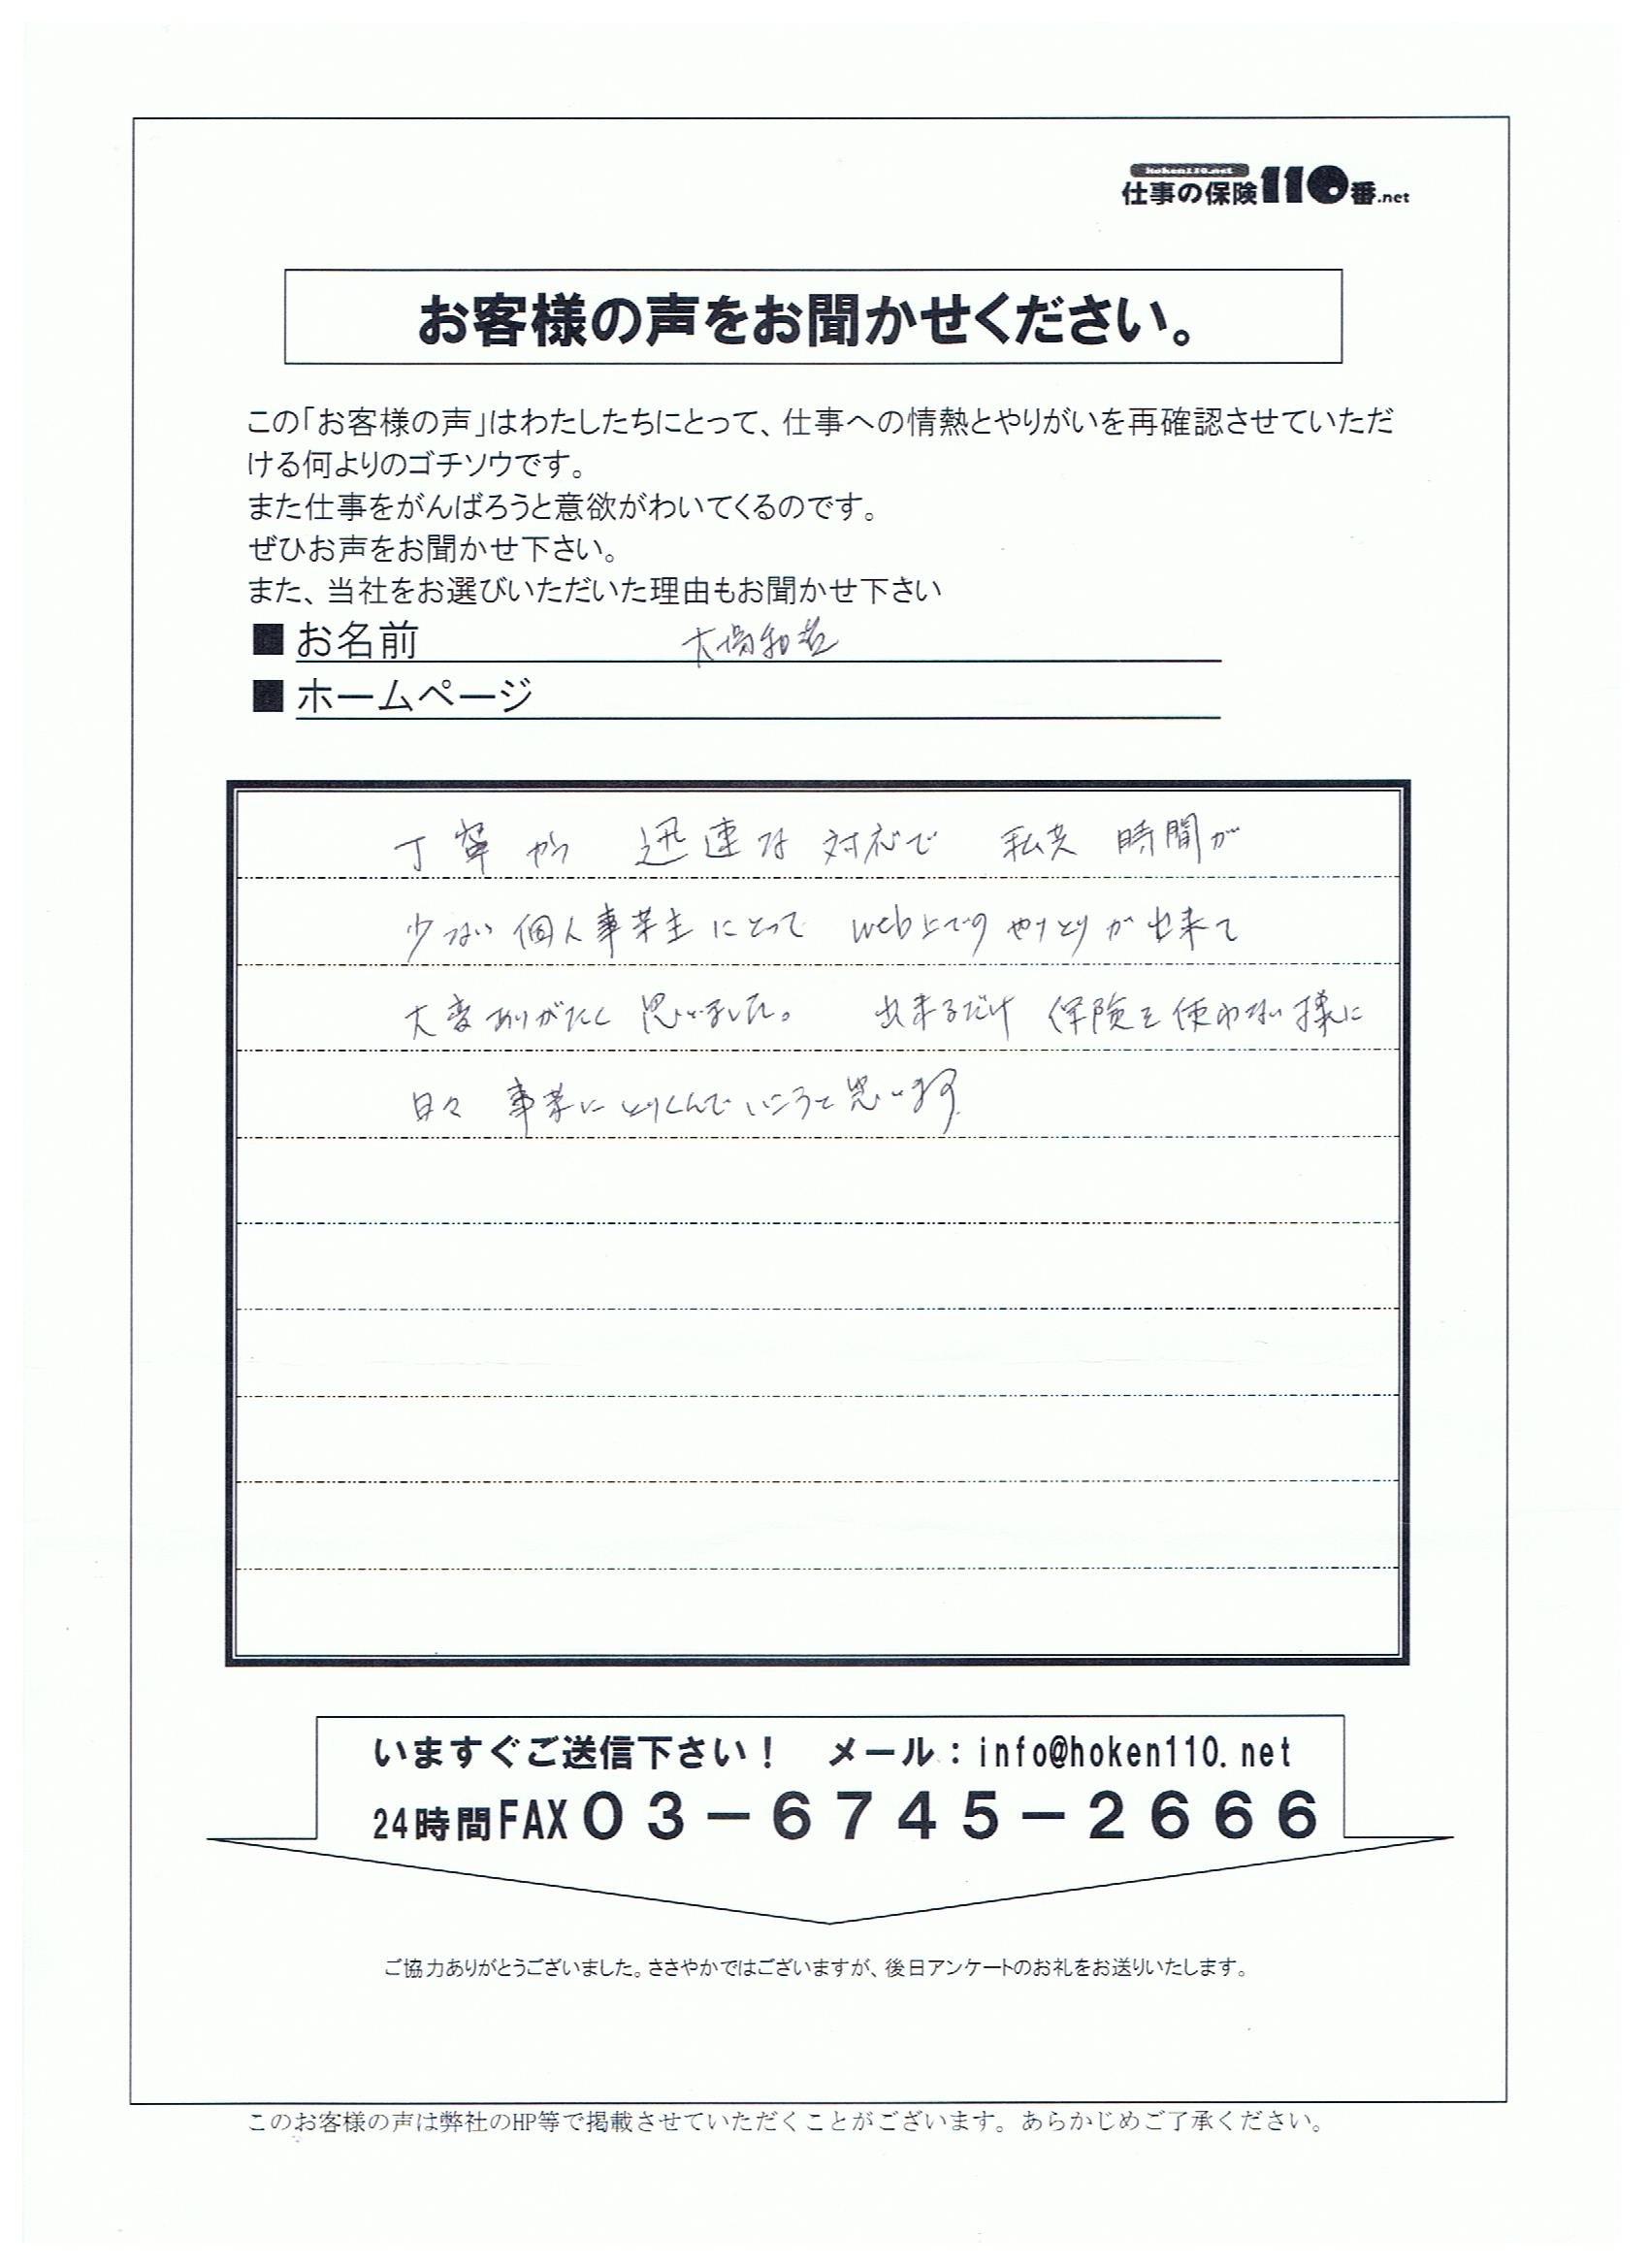 hoken110.net
仕事の保険110番.net
お客様の声をお聞かせください。
この「お客様の声」はわたしたちにとって、仕事への情熱とやりがいを再確認させていただ
ける何よりのゴチソウです。
また仕事をがんばろうと意欲がわいてくるのです。
ぜひお声をお聞かせ下さい。
また、当社をお選びいただいた理由もお聞かせ下さい
■お名前 大場和
■ホームページ
丁寧かつ 迅速な 対応で 私共 時間が
少ない 個人事業主 にとって web上での やりとりが 出来て
大変ありがたく 思いました。 出来るだけ 保険を使わない様に
日々 事業にとりくんでいこうと思います
いますぐご送信下さい！ メール：info@hoken110.net
24時間FAX０３－６７４５－２６６６
ご協力ありがとうございました。ささやかではございますが、後日アンケートのお礼をお送りいたします。
このお客様の声は弊社のHP等で掲載させていただくことがございます。あらかじめご了承ください。